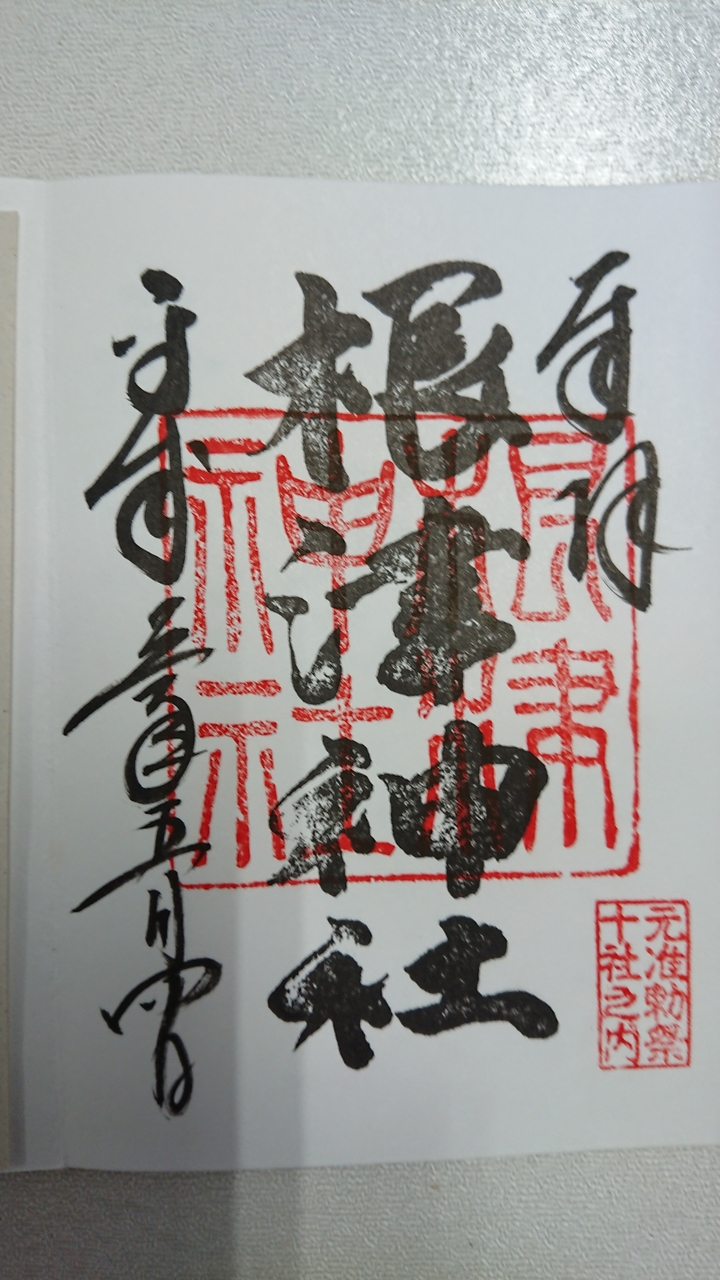 奉拝
元准勅祭
十社之内
根津神社
根津
神社
平成
五月四日